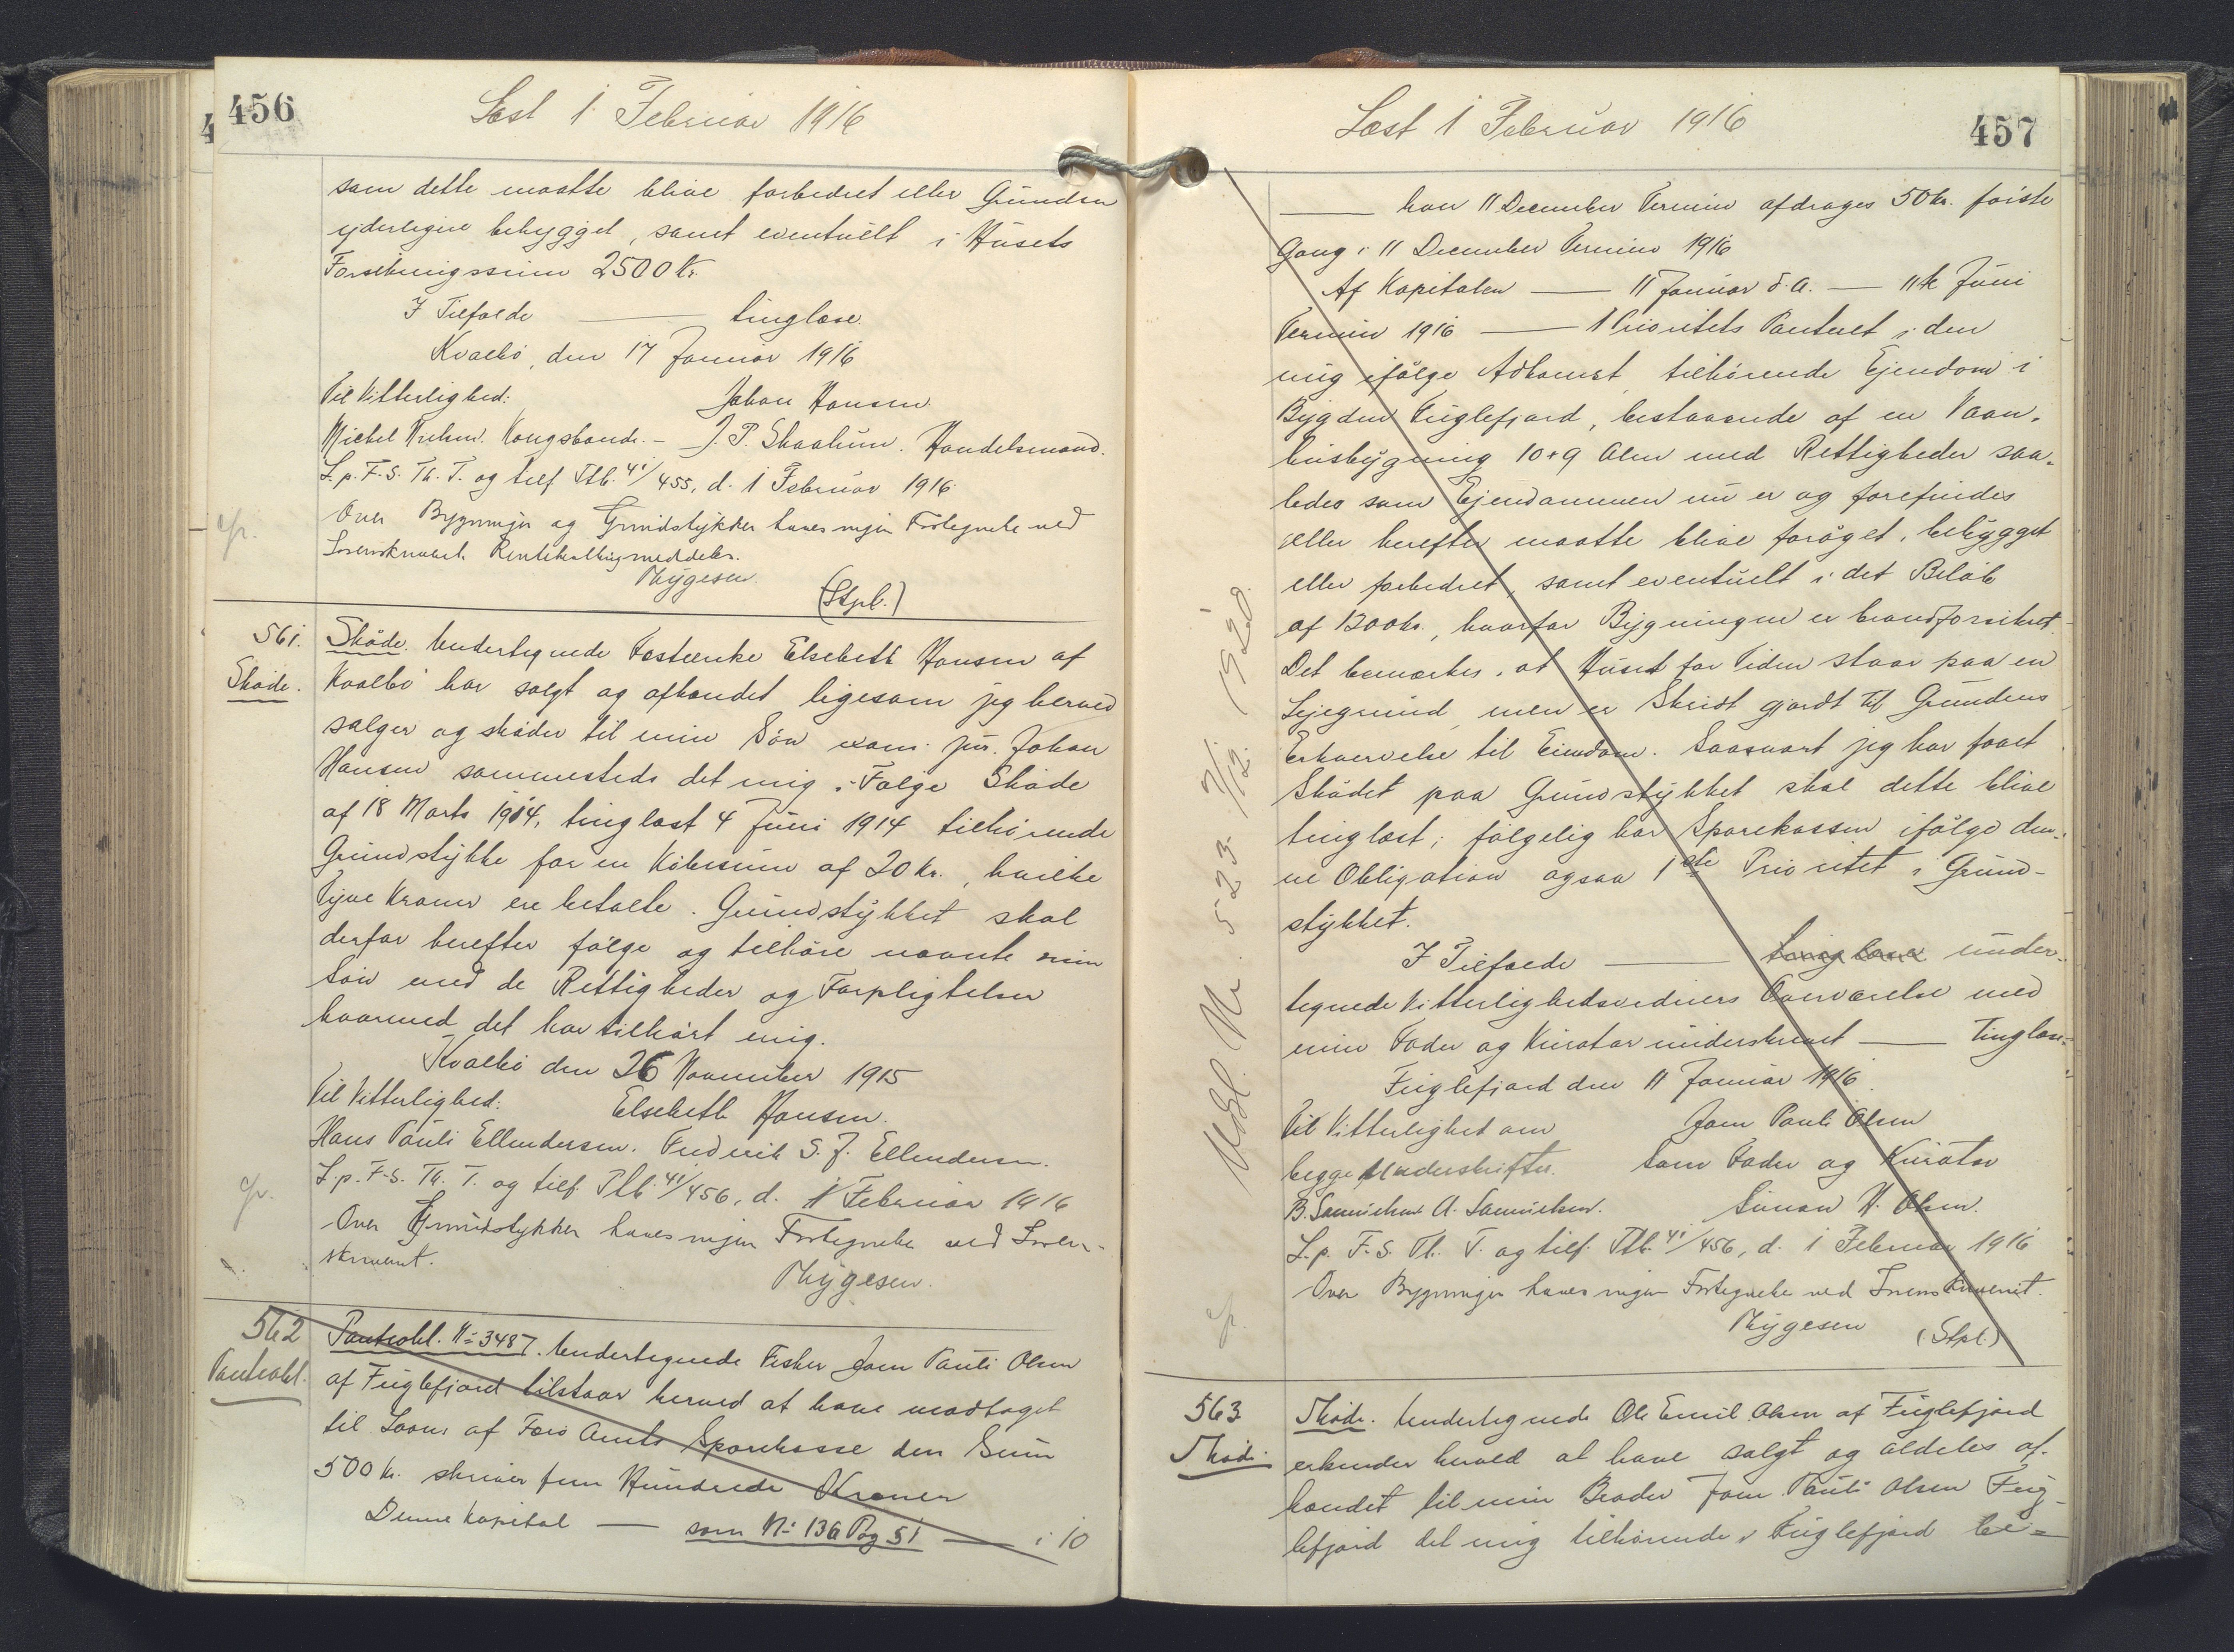 456
Læst 1 Februar 1916
som dette maatte blive forbedret eller Grunden
yderligere bebygget, samt eventuelt i Husets
Forsikringssum 2500 Kr.
I Tilfælde ——— tinglæse.
Kvalbø, den 17 Januar 1916
Til Vitterlighed: Johan Hansen
Michel Kongsbonde. - J. P. Skaalum. Handelsmand.
L. p. F. S. Th. T. og tilf. Ptb. 41/455, d. 1 Februar 1916
cfr. Over Bygninger og Grundstykker haves ingen Fortegnelse ved
Sorenskriveriet.
Mygesen
(Stpl.)
561. Skøde. Undertegnede Fæsteenke Elsebeth Hansen af
Skøde. Kvalbø har solgt og afhændet ligesom jeg herved
sælger og skøder til min Søn exam. jur. Johan
Hansen sammesteds det mig i Følge Skøde
af 18 Marts 1914, tinglæst 4 Juni 1914 tilhørende
Grundstykke for en Købesum af 20 Kr., hvilke
Tyve Kroner ere betalte. Grundstykket skal
derfor herefter følge og tilhøre nævnte min
Søn med de Rettigheder og Forpligtelser
hvormed det har tilhørt mig.
Kvalbø den 26 November 1915
Til Vitterlighed: Elsebeth Hansen.
Hans Pauli Ellendersen. Frederik S. J. Ellendersen.
L. p. F. S. Th. T. og tilf. Ptb. 41/456, d. 1 Februar 1916
cfr. Over Grundstykker haves ingen Fortegnelse ved Soren-
skriveriet.
Mygesen.
562 Panteobl. No 3487. Undertegnede Fisker Joen Pauli Olsen
Panteobl. af Fuglefjord tilstaar herved at have modtaget
til Laans af Færø Amts Sparekasse den Sum
500 kr. skriver fem Hundrede Kroner
Denne Kapital — som No 136 Pag 51 — i 10
457
Læst 1 Februar 1916
——— hver 11 December Termin afdrages 50 kr. første
Gang i 11 December Termin 1916
Af Kapitalen —— 11 Januar d. A. — 11te Juni
Termin 1916 —— 1 Prioritets Panteret i den
mig ifølge Adkomst tilhørende Ejendom i
Bygden Fuglefjord, bestaaende af en Vaan-
husbygning 10 + 9 Alen med Rettigheder saa-
ledes som Ejendommen nu er og forefindes
eller herefter maatte blive forøget, bebygget
eller forbedret, samt eventuelt i det Beløb
af 1200 kr., hvorfor Bygningen er brandforsikret.
Det bemærkes, at Huset for Tiden staar paa en
Lejegrund, men er Skridt gjordt til Grundens
Erhvervelse til Eiendom. Saasnart jeg har faaet
Skødet paa Grundstykket skal dette blive
tinglæst; følgelig har Sparekassen ifølge den-
ne Obligation ogsaa 1ste Prioritet i Grund-
stykket.
I Tilfælde ——— tinglæse under-
tegnede Vitterlighedsvidners Overværelse med
min Fader og Kurator underskrevet —— Tinglæse.
Fuglefjord den 11 Januar 1916.
Til Vitterlighed om Joen Pauli Olsen
begge Underskrifter. Som Fader og Kurator
B. Samuelsen A. Samuelsen. Simon H. Olsen.
L. p. F. S. Th. T. og tilf. Ptb. 41/456, d. 1 Februar 1916
cfr. Over Bygninger haves ingen Fortegnelse ved Sorenskriveriet.
Mygesen (Stpl.)
Udsl. No. 523 7/12. 1920.
563 Skøde. Undertegnede Ole Emil Olsen af Fuglefjord
Skøde erkender herved at have solgt og aldeles af-
hændet til min Broder Joen Pauli Olsen Fug-
lefjord det mig tilhørende i Fuglefjord be-